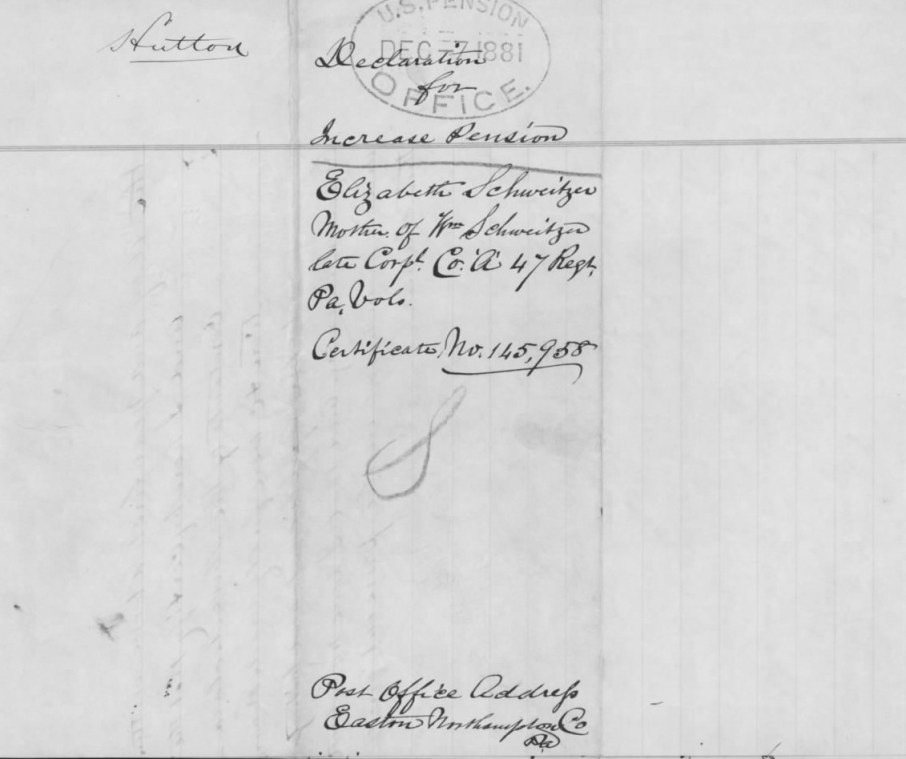 Hutton
U.S. PENSION
DEC -7 1881
OFFICE.
Declaration
for
Increase Pension
Elizabeth Schweitzer
Mother of Wm Schweitzer
late Corpl. Co. "A" 47 Regt.
Pa, Vols.
Certificate, No. 145,958
S
Post Office Address
Easton Northampton Co
Pa